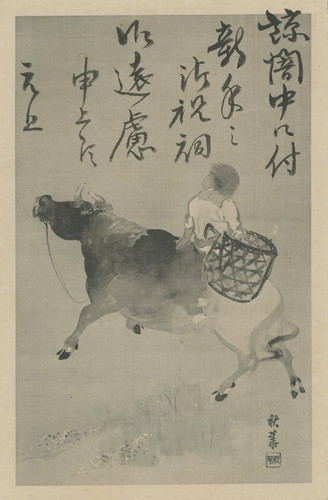 諒闇中ニ付
新年之
御祝詞
御遠慮
申上候
元旦
秋華